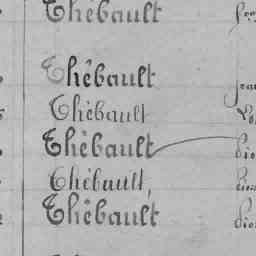 Thébault
Thébault
Thébault
Thébault
Thébault,
Thébault